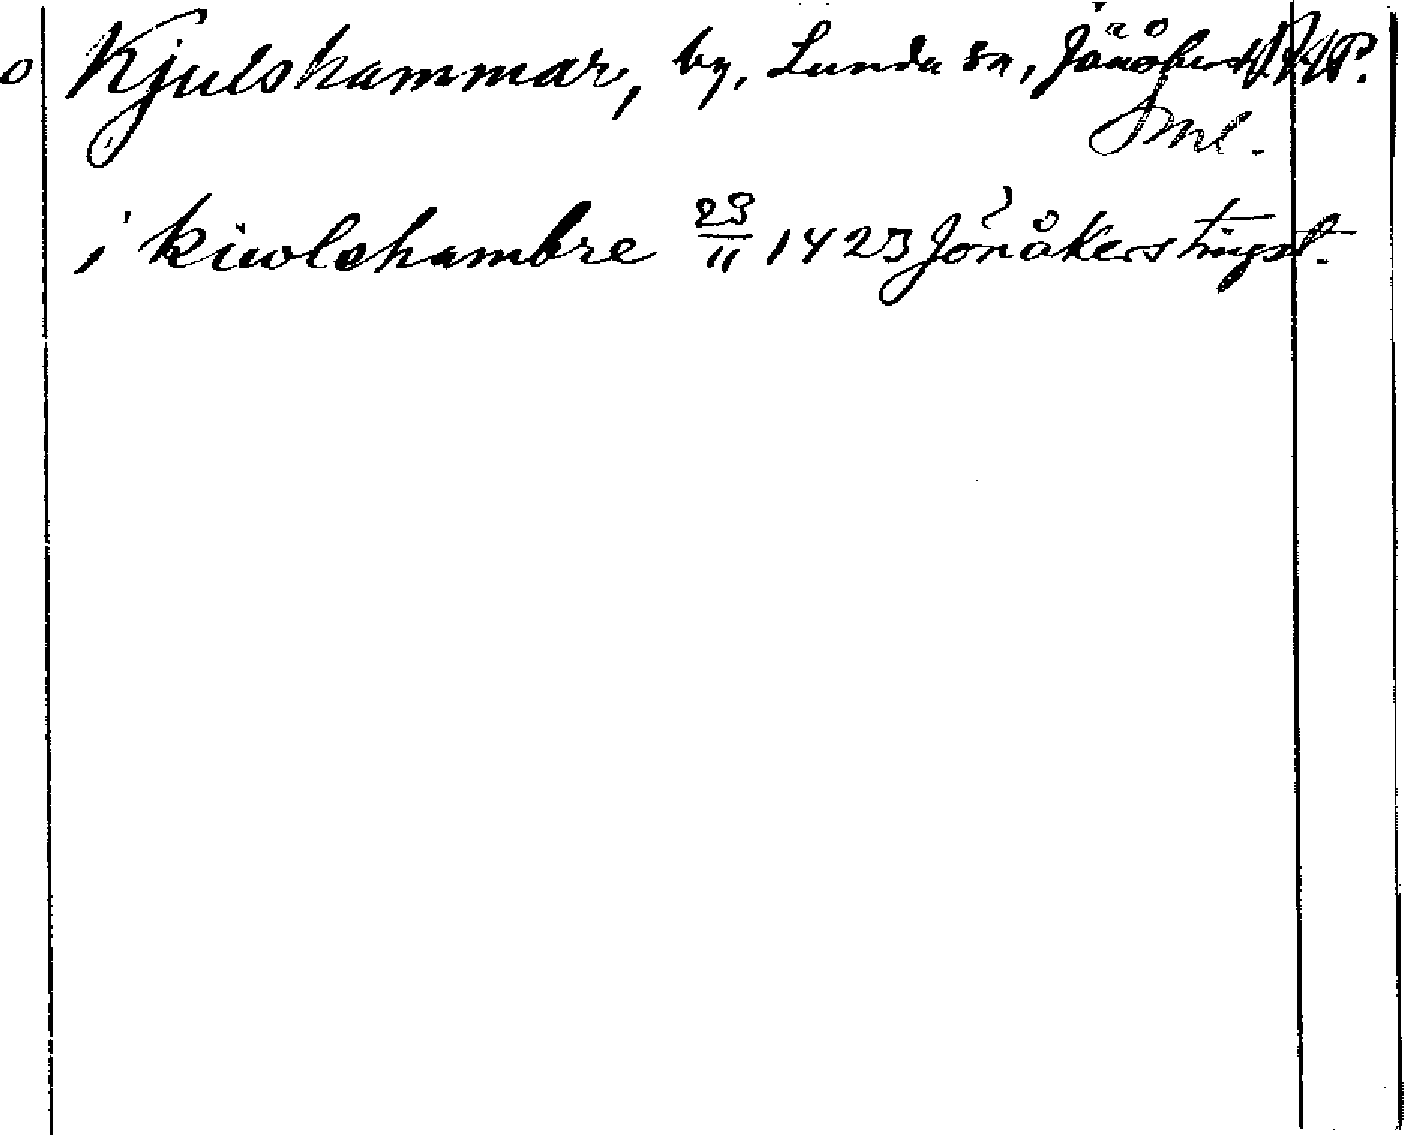 Kjulshammar, by, Lunda sn, Jönåkers
Sml.
i kiwlshambre 23/11 1423 Jönåkers tingst.